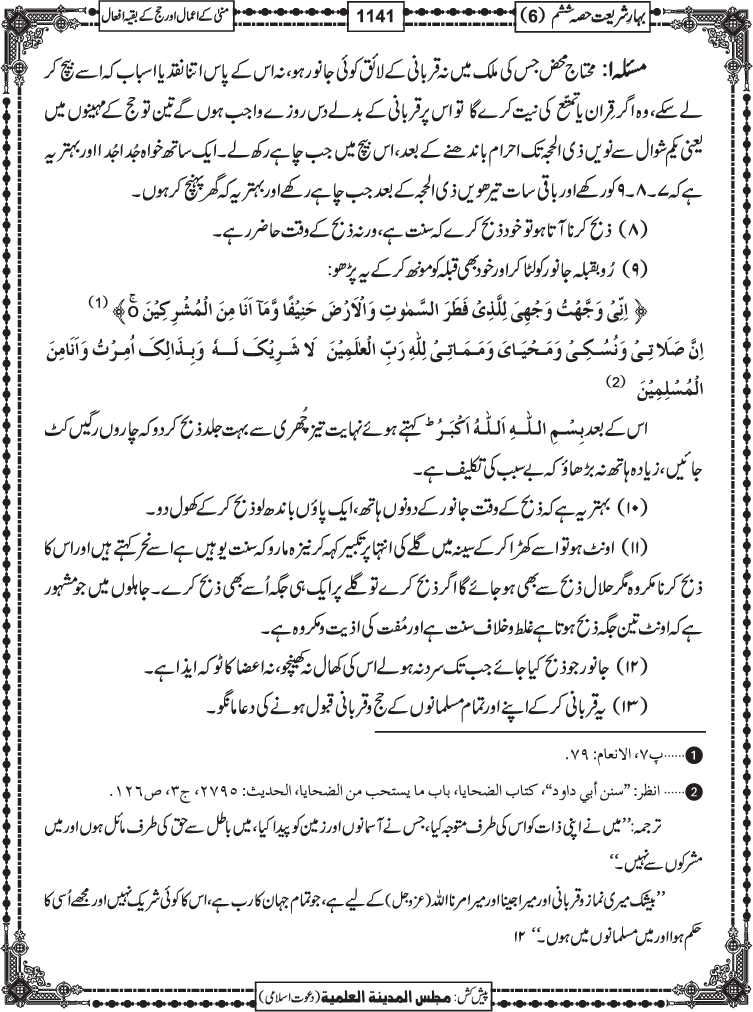 بہارِ شریعت حصہ ششم (6)
1141
منیٰ کے اعمال اور حج کے بقیہ افعال
مسئلہ ۱: محتاج محض جس کی ملک میں نہ قربانی کے لائق کوئی جانور ہو، نہ اس کے پاس اتنا نقد یا اسباب کہ اسے بیچ کر
لے سکے، وہ اگر قِران یا تمتّع کی نیت کرے گا تو اس پر قربانی کے بدلے دس روزے واجب ہوں گے تین تو حج کے مہینوں میں
یعنی یکم شوال سے نویں ذی الحجہ تک احرام باندھنے کے بعد، اس بیچ میں جب چاہے رکھ لے۔ ایک ساتھ خواہ جدا جدا اور بہتر یہ
ہے کہ ۷۔۸۔۹ کو رکھے اور باقی سات تیرھویں ذی الحجہ کے بعد جب چاہے رکھے اور بہتر یہ کہ گھر پہنچ کر ہوں۔
(۸) ذبح کرنا آتا ہو تو خود ذبح کرے کہ سنت ہے، ورنہ ذبح کے وقت حاضر رہے۔
(۹) رُو بقبلہ جانور کو لٹا کر اور خود بھی قبلہ کو مونھ کر کے یہ پڑھو:
﴿ اِنِّیْ وَجَّهْتُ وَجْهِیَ لِلَّذِیْ فَطَرَ السَّمٰوٰتِ وَالْاَرْضَ حَنِیْفًا وَّمَاۤ اَنَا مِنَ الْمُشْرِکِیْنَ ۚ﴾ (1)
اِنَّ صَلَاتِیْ وَنُسُکِیْ وَمَحْیَایَ وَمَمَاتِیْ لِلّٰهِ رَبِّ الْعٰلَمِیْنَ لَا شَرِیْکَ لَهٗ وَبِذَالِکَ اُمِرْتُ وَاَنَامِنَ
الْمُسْلِمِیْنَ (2)
اس کے بعد بِسْمِ اللّٰهِ اَللّٰهُ اَکْبَرُ ؕ کہتے ہوئے نہایت تیز چُھری سے بہت جلد ذبح کر دو کہ چاروں رگیں کٹ
جائیں، زیادہ ہاتھ نہ بڑھاؤ کہ بے سبب کی تکلیف ہے۔
(۱۰) بہتر یہ ہے کہ ذبح کے وقت جانور کے دونوں ہاتھ، ایک پاؤں باندھ لو ذبح کر کے کھول دو۔
(۱۱) اونٹ ہو تو اسے کھڑا کر کے سینہ میں گلے کی انتہا پر تکبیر کہہ کر نیزہ مارو کہ سنت یوہیں ہے اسے نحر کہتے ہیں اور اس کا
ذبح کرنا مکروہ مگر حلال ذبح سے بھی ہو جائے گا اگر ذبح کرے تو گلے پر ایک ہی جگہ اُسے بھی ذبح کرے۔ جاہلوں میں جو مشہور
ہے کہ اونٹ تین جگہ ذبح ہوتا ہے غلط و خلاف سنت ہے اور مُفت کی اذیت و مکروہ ہے۔
(۱۲) جانور جو ذبح کیا جائے جب تک سرد نہ ہولے اس کی کھال نہ کھینچو، نہ اعضا کاٹو کہ ایذا ہے۔
(۱۳) یہ قربانی کر کے اپنے اور تمام مسلمانوں کے حج و قربانی قبول ہونے کی دعا مانگو۔
1 ......پ۷، الانعام: ۷۹.
2 ...... انظر: "سنن أبي داود"، کتاب الضحايا، باب ما يستحب من الضحايا، الحديث: ۲۷۹۵، ج۳، ص۱۲۶.
ترجمہ: ''میں نے اپنی ذات کو اس کی طرف متوجہ کیا، جس نے آسمانوں اور زمین کو پیدا کیا، میں باطل سے حق کی طرف مائل ہوں اور میں
مشرکوں سے نہیں۔''
''بیشک میری نماز و قربانی اور میرا جینا اور میرا مرنا اللہ (عزوجل) کے لیے ہے، جو تمام جہان کا رب ہے، اس کا کوئی شریک نہیں اور مجھے اُسی کا
حکم ہوا اور میں مسلمانوں میں ہوں۔'' ۱۲
پیش کش: مجلس المدینة العلمیة (دعوت اسلامی)